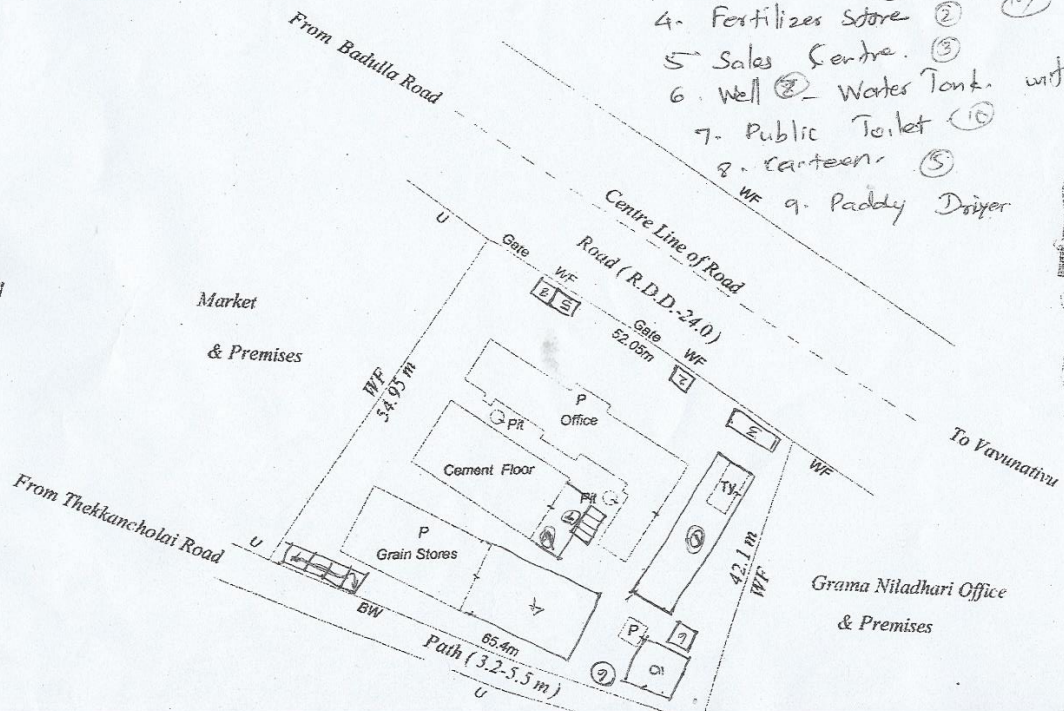 4. Fertilizer Store ②
5 Sales Centre. ③
6. Well - Water Tank.
7. Public Toilet ⑩
8. ⑤
9. Paddy Driyer
From Badulla Road
WF
Centre Line of Road
Road ( R.D.D.-24.0 )
U
Gate
WF
8 5
Gate
52.05m
WF
2
3
WF
To Vavunativu
Market
& Premises
WF
54.95 m
P
Office
Pit
Cement Floor
Pit
P
Grain Stores
Ty
1
42.1 m
WF
Grama Niladhari Office
& Premises
From Thekkancholai Road
U
BW
65.4m
Path ( 3.2-5.5 m )
U
P
9
6
10